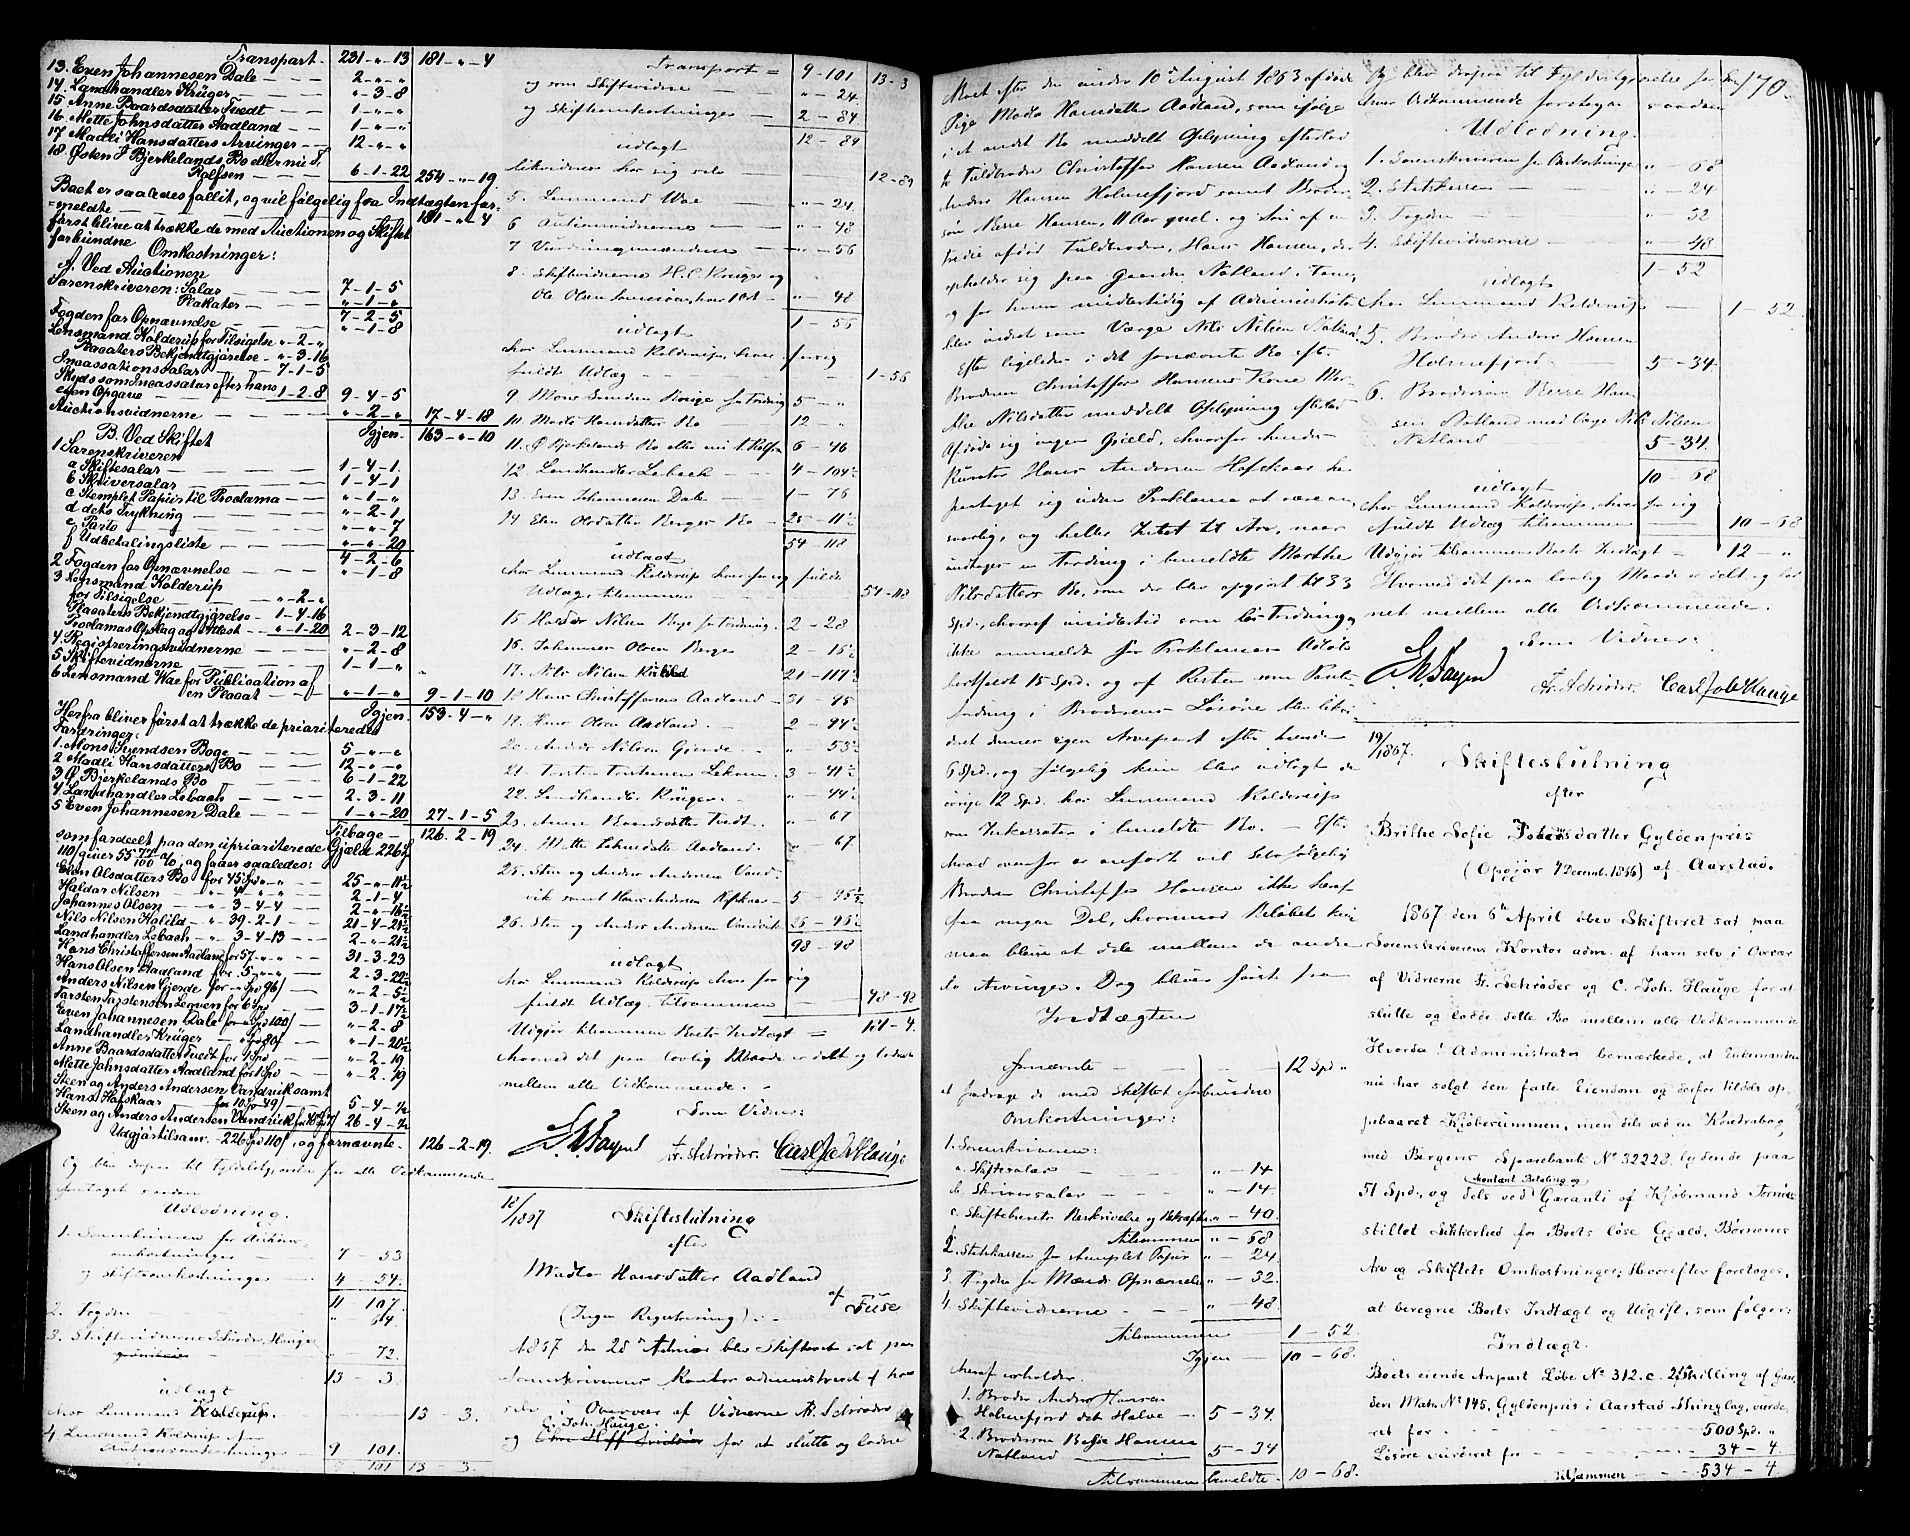 Transport. 231-"-13 181-"-4
13. Even Johannesen Dale - - - 2-"-"
14. Landhandler Krüger - - - "-3-8
15 Anne Baardsdatter Tvedt - - - 1-"-"
16. Mette Johnsdatter Aadland - - 1-"-"
17 Madli Hansdatters Arvinger - - 12-"-"
18 Østen J Bjerkelands Bo eller nu T.
Rolfsen - - - 6-1-22 254-"-19
Boet er saaledes fallit, og vil følgelig fra Indtægten for-
=meldte - - - 181-"-4
først blive at trække de med Auctionen og Skiftet
forbundne Omkostninger:
A. Ved Auctionen
Sorenskriveren: Salær 7-1-5
Plakater - "-1-"
7-2-5
Fogden for Opnævnelse "-1-8
Lensmand Kolderup for Tilsigelse "-2-"
Placaters Bekjendtgjørelse - "-3-16
Incassationssalær - 7-1-5
Skyds som Incassator efter hans
egen Opgave - 1-2-8 9-4-5
Auctionsvidnerne - - - "-2-" 17-4-18
Igjen. 163-"-10
B. Ved Skiftet
1 Sorenskriveren
a Skiftesalær - - - 1-4-1
b Skriversalær - - - 1-4-1
c Stemplet Papir til Proclama - - "-1-"
d dets Trykning - - "-2-1
e Porto - - - "-"-7
f Udbetalingsliste - - - "-"-20
4-2-6
2 Fogden for Opnævnelse - - - "-1-8
3 Lensmand Kolderup
for Tilsigelse - - "-2-"
Placaters Bekjendtgjørelse - 1-4-16
Proclamas Opslag og Attest - "-1-20 2-3-12
4 Registreringsvidnerne - - - "-2-8
5 Skiftevidnerne - - - 1-1-"
6 Lensmand Wae for Publication af
en Placat - - - "-1-" 9-1-10
Igjen. 153-4-"
Herfra bliver først at trække de prioriterede
Fordringer:
1. Mons Svendsen Boge - - - 5-"-"
2 Madli Hansdatters Bo - - - 12-"-"
3 Ø Bjerkelands Bo - - - 6-1-22
4 Landhandler Lebach - - - 2-3-11
5 Even Johannesen Dale - - - 1-"-20 27-1-5
Tilbage - 126-2-19
som fordeelt paa den upriorterede Gjæld 226 Sp
110/ giver 55 77/100 %, og faaer saaledes:
Elen Olsdatters Bo for 45 Spd - - 25-"-11½
Haldor Nilsen - " 4-"-" - - 2-1-4
Johannes Olsen - " 3-4-4 - - 2-"-16½
Nils Nilsen Kalild - " 39-2-1 - - 21-4-21½
Landhandler Lebach - " 3-4-13 - - 2-"-21½
Hans Christoffersen Aadland for 57-"-" 31-3-23
Hans Olsen Aadland for 5-"-" - - 2-3-22½
Anders Nilsen Gjerde for "Spd 96/ "-2-5½
Torsten Torstensen Leqven for 6 Spd 3-1-17½
Even Johannesen Dale for "Spd 100/ "-2-8
Landhandler Krüger - "Spd 80/ "-1-20½
Anne Baardsdatter Tvedt for 1 Spd - "-2-19
Mette Johnsdatter Aadland for 1 Spd "-2-19
Steen og Anders Andersen Vandvik samt
Hans Hafskaar for 10 Spd 49/ - - 5-4-½
Steen og Anders Andersen Vandvik for 26-4-½
Udgjør tilsam. 226 Spd 110/, og fornævnte - 126-2-19.
Og blev derpaa til Fyldestgjørelse for alle Vedkommende
foretaget saadan
Udlodning.
1. Sorenskriveren for Auktions-
omkostninger - - 7-53
og skifteomkostninger - 4-54
11 107.
2. Fogden - - - " - 64.
3. Skiftevidnerne Schrøder, Hauge
" - 72.
13 - 3.
udlagt
hos Lensmand Kolderup. - - - 13 - 3.
4 Lensmand Kolderup for
Auktionsomkostninger 9 101.
9 101 13 - 3.
Transport = 9-101 13-3
og som Skiftevidne - - "-24
og Skifteomkostninger - 2-84
udlagt 12-84
likvideres hos sig selv - - 12-84
5. Lensmand Wae - - "-24.
6 Auktionsvidnerne - - "-48
7 Vurderingsmændene - - "-56
8. Skiftevidnerne H. C. Krüger og
Ole Olsen - "-48
udlagt 1-56
hos Lensmand Kolderup, hvor for sig
fuldt Udlæg - - - 1-56
9 Mons Svendsen Bouge for Fordring 5 - "
10 Madli Hansdatters Bo - - 12 "
11. Ø Bjerkelands Bo eller nu T. Rolfsen 6-46
12. Landhandler Lebach - - 4-104½
13. Even Johannesen Dale - - 1-76
14 Elen Olsdatter Berges Bo - 25-11½
54-118
udlagt
hos Lensmand Kolderup hvor for sig fuldt
Udlæg, tilsammen - - - 54-118
15 Haldor Nilsen Berge for Fordring 2-28
16. Johannes Olsen Berge 2-16½
17. Nils Nilsen Kalild 21-117½
18 Hans Christoffersen Aadland - 31 95
19. Hans Olsen Aadland. - 2-94½
20. Anders Nilsen Gjerde - - " 53½
21. Torsten Torstensen Lekven - 3 41½
22. Landhandler Krüger. - " 44½
23. Anne Baardsdatter Tvedt. - " 67
24. Mette Johnsdatter Aadland. - " 67
25. Sten og Anders Andersen Vand-
vik samt Hans Andersen Hafskaar - 5-96½
26. Sten og Anders Andersen Vandvik 26-96½
98-98
udlagt
hos Lensmand Kolderup hvor for sig
fuldt Udlæg tilsammen - 98-98
Udgjør tilsammen Boets Indtægt = 181-4.
Hvorved det paa lovlig Maade er delt og loddet
mellem alle Vedkommende. -
Som Vidner:
Fr. Schrøder. Carl Joh Hauge
18/1867 Skifteslutning
efter
Madte Hansdatter Aadland
af Fuse
(Ingen Registrering).
1867 den 28de blev Skifteret sat paa
Sorenskriverens Kontor administreret af ham
selv i Overvær af Vidnerne Fr. Schrøder
C. Joh. Hauge.
og for at slutte og lodde
Boet efter den under 10de August 1863 afdøde
Pige Madte Hansdatter Aadland, som ifølge
i et andet Bo meddelt Oplysning efterlod
2 Fuldbrødre Christoffer Hansen Aadland og
Anders Hansen Holmefjord samt Broder-
søn Berre Hansen, 11 Aar gml. og Søn af en
tredie afdød Fuldbroder, Hans Hansen, der
opholder sig paa Gaarden Natland i Fane,
og for hvem midlertidig af Administrator
blev indsat som Værge Nils Nilsen Natland
Efter ligeledes i det fornævnte Bo eft.
Broderen Christoffer Hansens Kone Mar-
the Nilsdatter meddelt Oplysning efterlod
Afdøde sig ingen Gjæld, hvorfor hendes
Kurator Hans Andersen Hafskaar har
paataget sig uden Proklama at være an-
svarlig, og heller Intet til Arv, naar
undtages en Fordring i bemeldte Marthe
Nilsdatters Bo, som der blev opgivet til 33
Spd., hvoraf imidlertid som Fordring
ikke anmeldt før Proklamas Udløb
bortfaldt 15 Spd. og af Resten
i Broderens Løsøre blev likvi-
deret dennes egen Arvepart efter hende
6 Spd., og følgelig kun blev udlagt de
øvrige 12 Spd. hos Lensmand Kolderup
som Inkassator i bemeldte Bo. - Efter
hvad ovenfor er anført vil selvfølgelig
Broderen Christoffer Hansen ikke heraf
faa nogen Del, hvorimod Beløbet kun
maa blive at dele mellem de andre
to Arvinger. Dog bliver først fra
Indtægten
fornævnte - - - 12 Spd "
at fradrage de med Skiftet forbundne
Omkostninger:
1. Sorenskriveren:
a. Skiftesalær - - " - 14
b. Skriversalær - - " - 14
c. Skiftebrevets Beskrivelse og Bekræftelse " - 40.
Tilsammen " - 68
2. Statskassen for stemplet Papir " - 24
3. Fogden for Mænds Opnævnelse " - 32.
4. Skiftevidnerne - - " - 48.
Tilsammen 1 - 52
Igjen - 10 - 68.
heraf erholder:
1. Broder Anders Hansen
Holmefjord det Halve - 5 - 34.
2. Brodersøn Berre Hansen
Natland 5 - 34
Tilsammen bemeldte - 10 - 68.
170.
Og blev derpaa til Fyldestgjørelse for en-
hver Vedkommende foretagen saadan
Udlodning.
1. Sorenskriveren for Omkostninger " - 68
2. Statskassen - - " - 24
3. Fogden - - " - 32
4. Skiftevidnerne - - " - 48
1 - 52
udlagt
hos Lensmand Kolderup - - 1 - 52.
5. Broder Anders Hansen
Holmefjord. - - 5 - 34.
6. Brodersøn Berre Han-
sen Natland med Værge Nils Nilsen
Natland - - 5 - 34.
10 - 68
udlagt
hos Lensmand Kolderup, hver for sig
fuldt Udlæg tilsammen - 10 - 68
Udgjør tilsammen Boets Indtægt - 12 - "
Hvorved det paa lovlig Maade er delt og lod-
net mellem alle Vedkommende.
Som Vidner:
Fr. Schrøder. Carl Joh Hauge
19/1867. Skifteslutning
efter
Brithe Sofie datter Gyldenpris
(Opgjør 7 Decemb. 1866) af Aarstad.
1867 den 6te April blev Skifteret sat paa
Sorenskriverens Kontor adm. af ham selv i Overvær
af Vidnerne Fr. Schrøder og C. Joh. Hauge for at
slutte og lodde dette Bo mellem alle Vedkommende
Hvorda: Administrator bemærkede, at Enkemanden
nu har solgt den faste Eiendom og derfor tildels op-
pebaaret Kjøbesummen, men dels ved en Kontrabog
med Bergens Sparebank No 32223, lydende paa
kontant Betaling og
51 Spd., og dels ved Garanti af Kjøbmand
stillet Sikkerhed for Boets løse Gjæld, Børnenes
Arv og Skiftets Omkostninger; Hvorefter foretoges,
at beregne Boets Indtægt og Udgift, som følger:
Indtægt.
Boets eiende Anpart Løbe No 312. c. 2 Skilling af Gaar-
den Matr. No 145, Gyldenpris i Aarstad Thinglag, vurde-
ret for - - - 500 Spd. "
Løsøre vurderet for - - - 34 - 4.
Tilsammen - - - 534 - 4